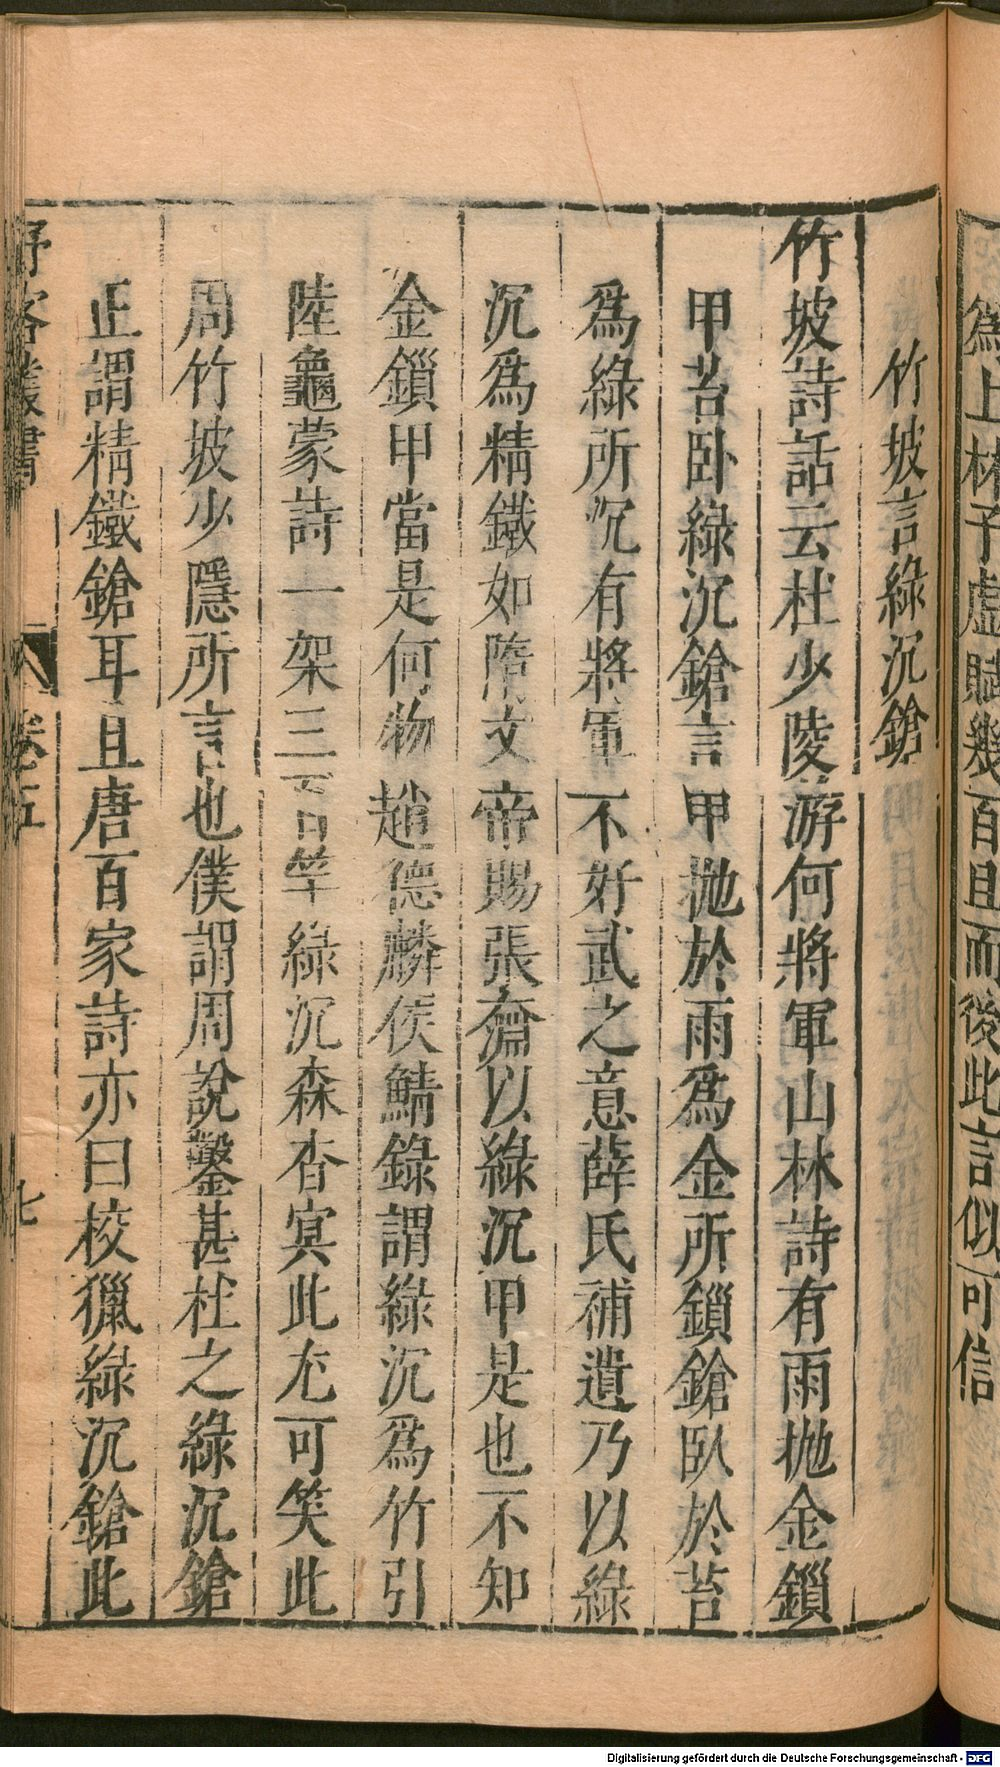 爲上林子虛賦幾百且而後此言似可信
竹坡言綠沉鎗
竹坡詩話云杜少陵游何將軍山林詩有雨抛金鎖
甲苔卧綠沉鎗言甲抛於雨爲金所鎖鎗臥於苔
爲綠所沉有將軍不好武之意薛氏補遺乃以綠
沉爲精鐵如隋文帝賜張奫以綠沉甲是也不知
金鎖甲當是何物趙德麟侯鯖錄謂綠沉爲竹引
陸龜蒙詩一架三百竿綠沉森杳冥此尤可笑此
周竹坡少隱所言也僕謂周說鑿甚杜之綠沉鎗
正謂精鐵鎗耳且唐百家詩亦曰校獵綠沉鎗此
野客叢書
卷五
七
Digitalisierung gefördert durch die Deutsche Forschungsgemeinschaft - DFG